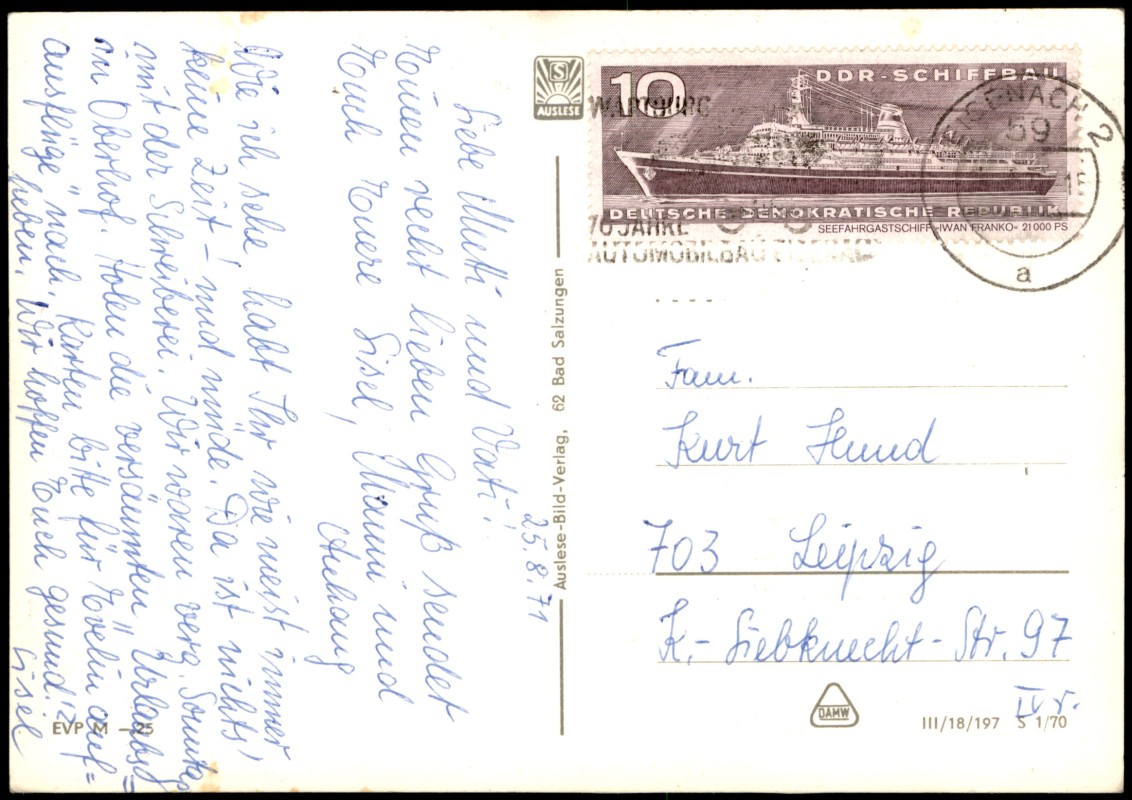 25.8.71
Liebe Mutti und Vati!
Einen recht lieben Gruß sendet
Euch Eure Lisel, Manni und
Anhang
Wie ich sehe habt Ihr wie meist immer
keine Zeit - und müde. Da ist nichts!
mit der Schreiberei. Wir waren verg. Sonntag
in Oberhof. Holen die versäumten "Urlaubs=
ausflüge" nach. Karten bitte für Evelin auf=
heben. Wir hoffen Euch gesund!
Lisel
EVP M -.25
S
AUSLESE
Auslese-Bild-Verlag, 62 Bad Salzungen
10
DDR-SCHIFFBAU
DEUTSCHE DEMOKRATISCHE REPUBLIK
SEEFAHRGASTSCHIFF »IWAN FRANKO« 21000 PS
WARTBURG
70 JAHRE
AUTOMOBILBAU EISENACH
EISENACH 2
59
a
Fam.
Kurt Hund
703 Leipzig
K.-Liebknecht-Str. 97
IV r.
DAMW
III/18/197 S 1/70